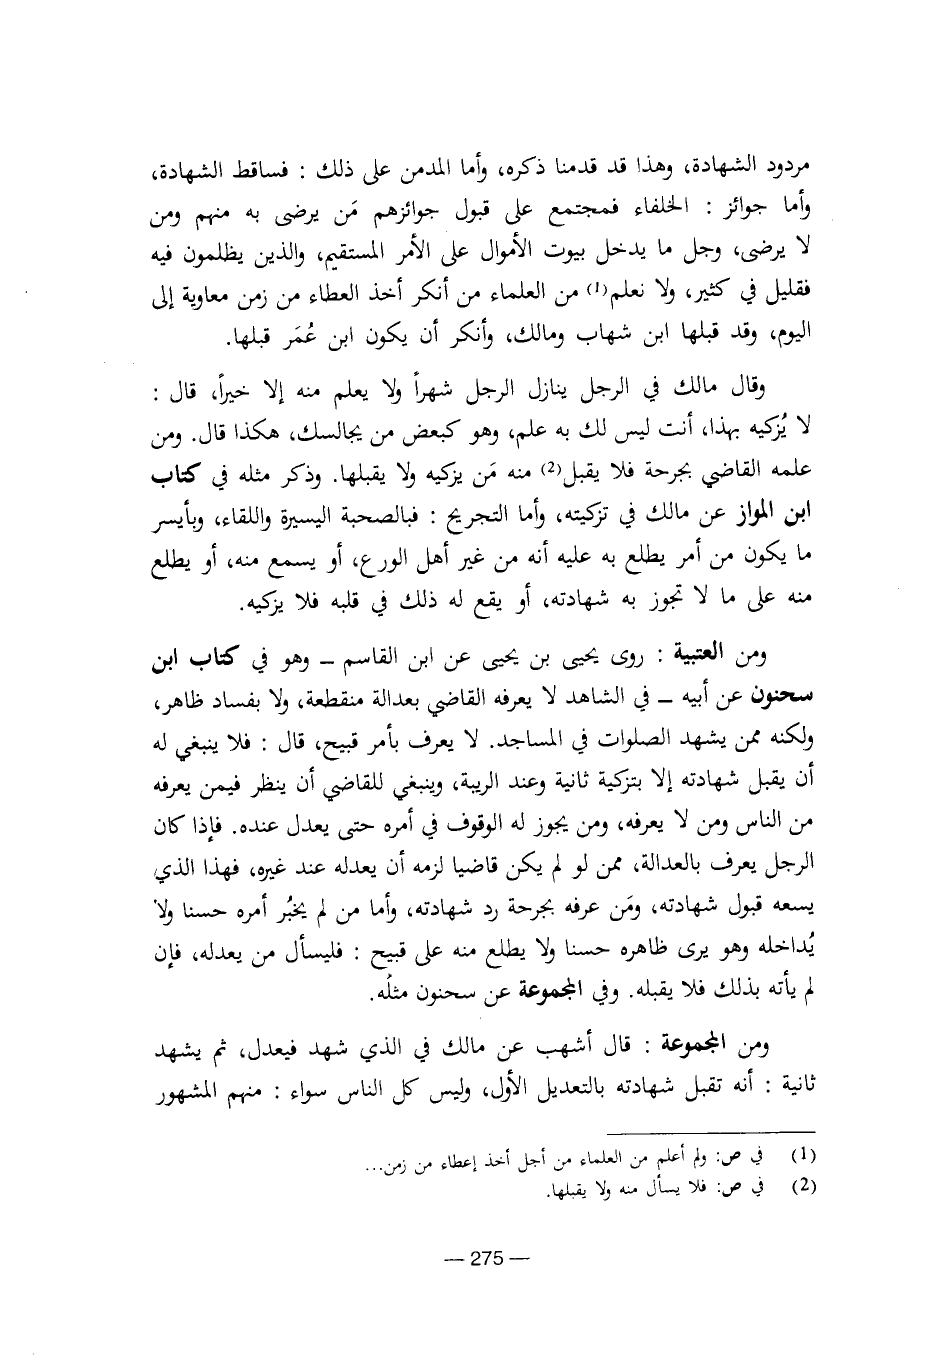 مردود الشهادة، وهذا قد قدمنا ذكره، وأما المدمن على ذلك : فساقط الشهادة،
وأما جوائز : الخلفاء فمجتمع على قبول جوائزهم مَن يرضى به منهم ومن
لا يرضى، وجل ما يدخل بيوت الأموال على الأمر المستقيم، والذين يظلمون فيه
فقليل في كثير، ولا نعلم(1) من العلماء من أنكر أخذ العطاء من زمن معاوية إلى
اليوم، وقد قبلها ابن شهاب ومالك، وأنكر أن يكون ابن عُمَر قبلها.
وقال مالك في الرجل ينازل الرجل شهراً ولا يعلم منه إلا خيراً، قال :
لا يُزكيه بهذا، أنت ليس لك به علم، وهو كبعض من يجالسك، هكذا قال. ومن
علمه القاضي بجرحة فلا يقبل(2) منه مَن يزكيه ولا يقبلها. وذكر مثله في كتاب
ابن المواز عن مالك في تزكيته، وأما التجريح : فبالصحبة اليسيرة واللقاء، وبأيسر
ما يكون من أمر يطلع به عليه أنه من غير أهل الورع، أو يسمع منه، أو يطلع
منه على ما لا تجوز به شهادته، أو يقع له ذلك في قلبه فلا يزكيه.
ومن العتبية : روى يحيى بن يحيى عن ابن القاسم – وهو في كتاب ابن
سحنون عن أبيه – في الشاهد لا يعرفه القاضي بعدالة منقطعة، ولا بفساد ظاهر،
ولكنه ممن يشهد الصلوات في المساجد. لا يعرف بأمر قبيح، قال : فلا ينبغي له
أن يقبل شهادته إلا بتزكية ثانية وعند الريبة، وينبغي للقاضي أن ينظر فيمن يعرفه
من الناس ومن لا يعرفه، ومن يجوز له الوقوف في أمره حتى يعدل عنده. فإذا كان
الرجل يعرف بالعدالة، ممن لو لم يكن قاضيا لزمه أن يعدله عند غيره، فهذا الذي
يسعه قبول شهادته، ومَن عرفه بجرحة رد شهادته، وأما من لم يخبُر أمره حسنا ولا
يُداخله وهو يرى ظاهره حسنا ولا يطلع منه على قبيح : فليسأل من يعدله، فإن
لم يأته بذلك فلا يقبله. وفي المجموعة عن سحنون مثلُه.
ومن المجموعة : قال أشهب عن مالك في الذي شهد فيعدل، ثم يشهد
ثانية : أنه تقبل شهادته بالتعديل الأول، وليس كل الناس سواء : منهم المشهور
(1) في ص: ولم أعلم من العلماء من أجل أخذ إعطاء من زمن...
(2) في ص: فلا يسأل منه ولا يقبلها.
— 275 —